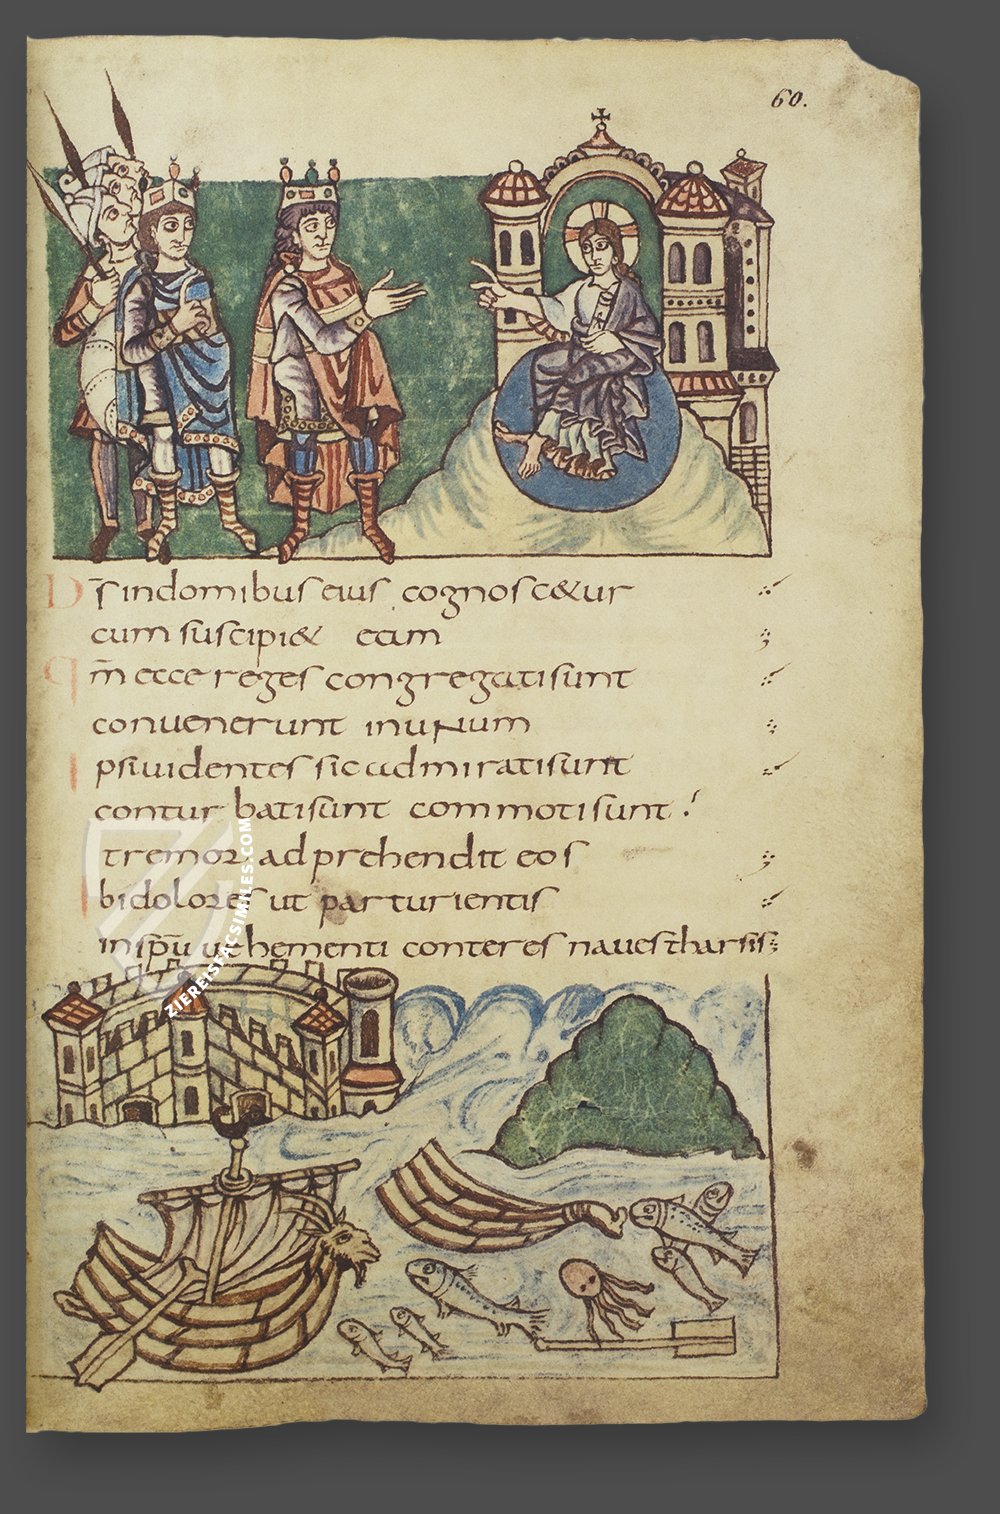 60.
D s̄ indomibus eius cognosc&ur
cum suscipi& eam
q m̄ ecce reges congregatisunt
convenerunt inunum
I psividentes sic admiratisunt
conturbatisunt commotisunt:
tremor adprehendit eos
I bidolores ut parturientis
inspū vehementi conteres naves tharsis:
ZIEREISFACSIMILES.COM